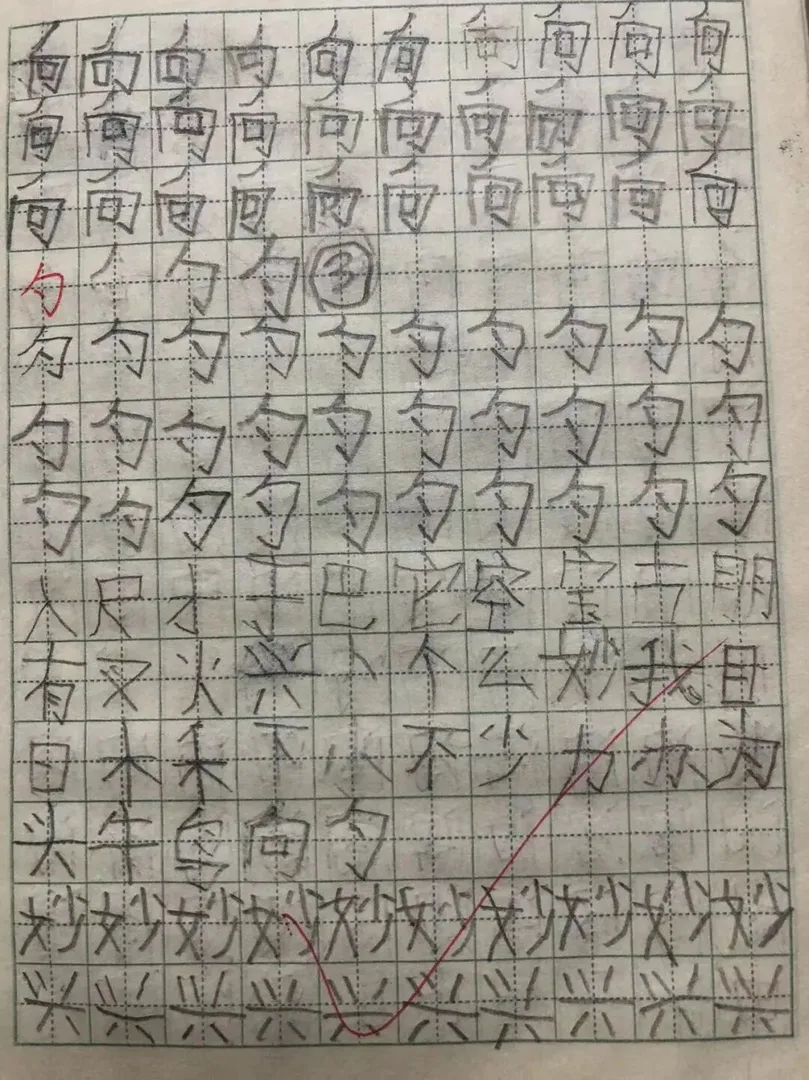 向向向向向向向向向向
向向向向向向向向向向
向向向向向向向向向向
勺勹勺③
勺勺勺勺勺勺勺勺勺勺
勺勺勺勺勺勺勺勺勺勺
勺勺勺勺勺勺勺勺勺勺
人尺才手巴它空宝明
有又火兴卜个么妙我目
日木禾下小不少力办为
头牛鸟向勺
妙妙妙妙妙妙妙妙妙妙
兴兴兴兴兴兴兴兴兴兴